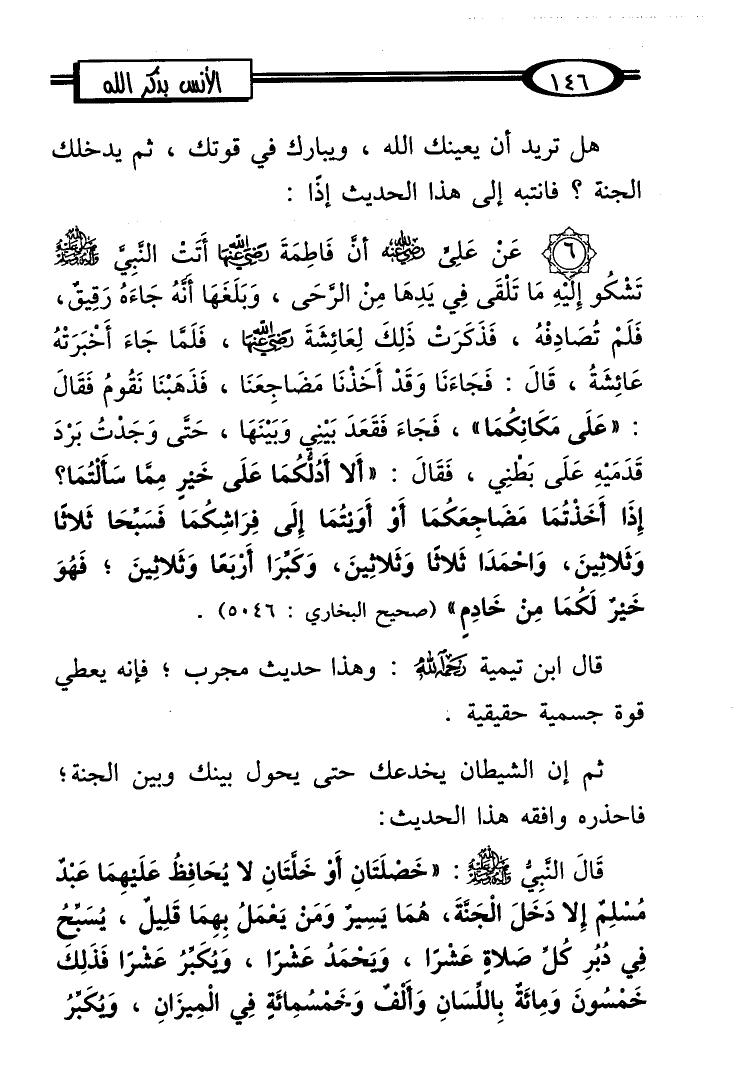 ١٤٦
الأنس بذكر الله
هل تريد أن يعينك الله ، ويبارك في قوتك ، ثم يدخلك
الجنة ؟ فانتبه إلى هذا الحديث إذًا :
٦ عَنْ عَلِيٍّ رَضِيَ اللَّهُ عَنْهُ أَنَّ فَاطِمَةَ رَضِيَ اللَّهُ عَنْهَا أَتَتْ النَّبِيَّ ﷺ
تَشْكُو إِلَيْهِ مَا تَلْقَى فِي يَدِهَا مِنْ الرَّحَى ، وَبَلَغَهَا أَنَّهُ جَاءَهُ رَقِيقٌ،
فَلَمْ تُصَادِفْهُ ، فَذَكَرَتْ ذَلِكَ لِعَائِشَةَ رَضِيَ اللَّهُ عَنْهَا ، فَلَمَّا جَاءَ أَخْبَرَتْهُ
عَائِشَةُ ، قَالَ : فَجَاءَنَا وَقَدْ أَخَذْنَا مَضَاجِعَنَا ، فَذَهَبْنَا نَقُومُ فَقَالَ
: «عَلَى مَكَانِكُمَا» ، فَجَاءَ فَقَعَدَ بَيْنِي وَبَيْنَهَا ، حَتَّى وَجَدْتُ بَرْدَ
قَدَمَيْهِ عَلَى بَطْنِي ، فَقَالَ : «أَلا أَدُلُّكُمَا عَلَى خَيْرٍ مِمَّا سَأَلْتُمَا؟
إِذَا أَخَذْتُمَا مَضَاجِعَكُمَا أَوْ أَوَيْتُمَا إِلَى فِرَاشِكُمَا فَسَبِّحَا ثَلاثًا
وَثَلاثِينَ، وَاحْمَدَا ثَلاثًا وَثَلاثِينَ، وَكَبِّرَا أَرْبَعًا وَثَلاثِينَ ؛ فَهُوَ
خَيْرٌ لَكُمَا مِنْ خَادِمٍ» (صحيح البخاري : ٥٠٤٦) .
قال ابن تيمية رَحِمَهُ اللَّهُ : وهذا حديث مجرب ؛ فإنه يعطي
قوة جسمية حقيقية .
ثم إن الشيطان يخدعك حتى يحول بينك وبين الجنة؛
فاحذره وافقه هذا الحديث:
قَالَ النَّبِيُّ ﷺ : «خَصْلَتَانِ أَوْ خَلَّتَانِ لا يُحَافِظُ عَلَيْهِمَا عَبْدٌ
مُسْلِمٌ إِلا دَخَلَ الْجَنَّةَ، هُمَا يَسِيرٌ وَمَنْ يَعْمَلُ بِهِمَا قَلِيلٌ ، يُسَبِّحُ
فِي دُبُرِ كُلِّ صَلاةٍ عَشْرًا ، وَيَحْمَدُ عَشْرًا ، وَيُكَبِّرُ عَشْرًا فَذَلِكَ
خَمْسُونَ وَمِائَةٌ بِاللِّسَانِ وَأَلْفٌ وَخَمْسُمِائَةٍ فِي الْمِيزَانِ ، وَيُكَبِّرُ